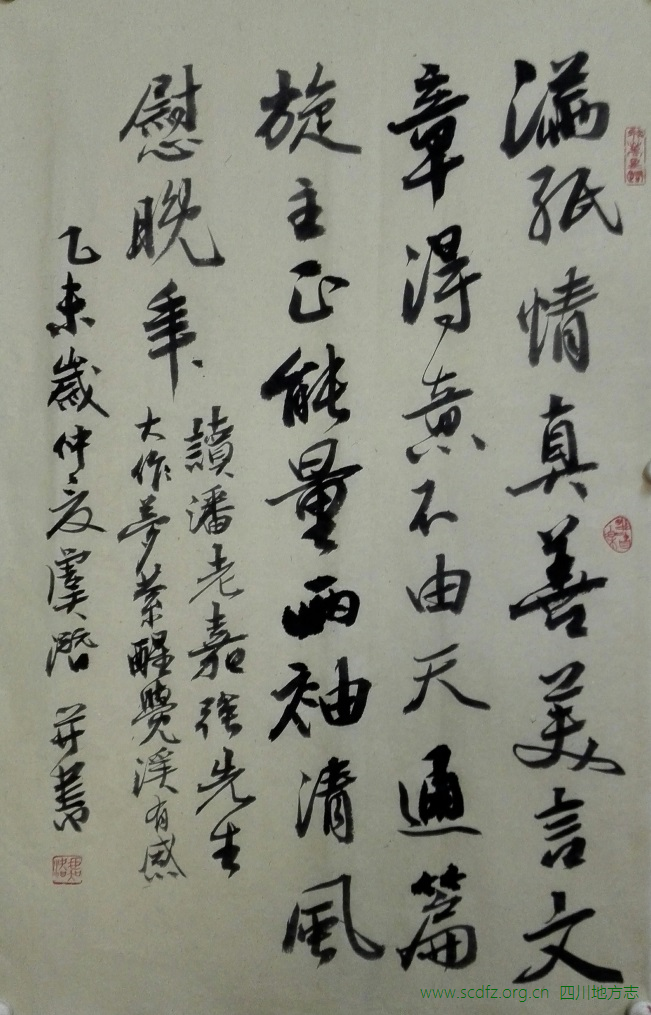 滿紙情真善美言文
章得意不由天通篇
旋主正能量兩袖清風
慰晚年
讀潘老嘉強先生
大作夢縈醒覺溪有感
乙未歲仲夏虞潛并書
www.scdfz.org.cn 四川地方志